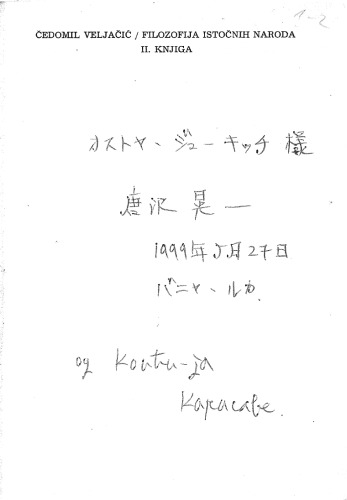 1-2
ČEDOMIL VELJAČIĆ / FILOZOFIJA ISTOČNIH NARODA
II. KNJIGA
オストヤ・ジューキッチ 様
唐沢 晃一
1999年5月27日
バニャ・ルカ
од Коићи-ја
Карасаве.